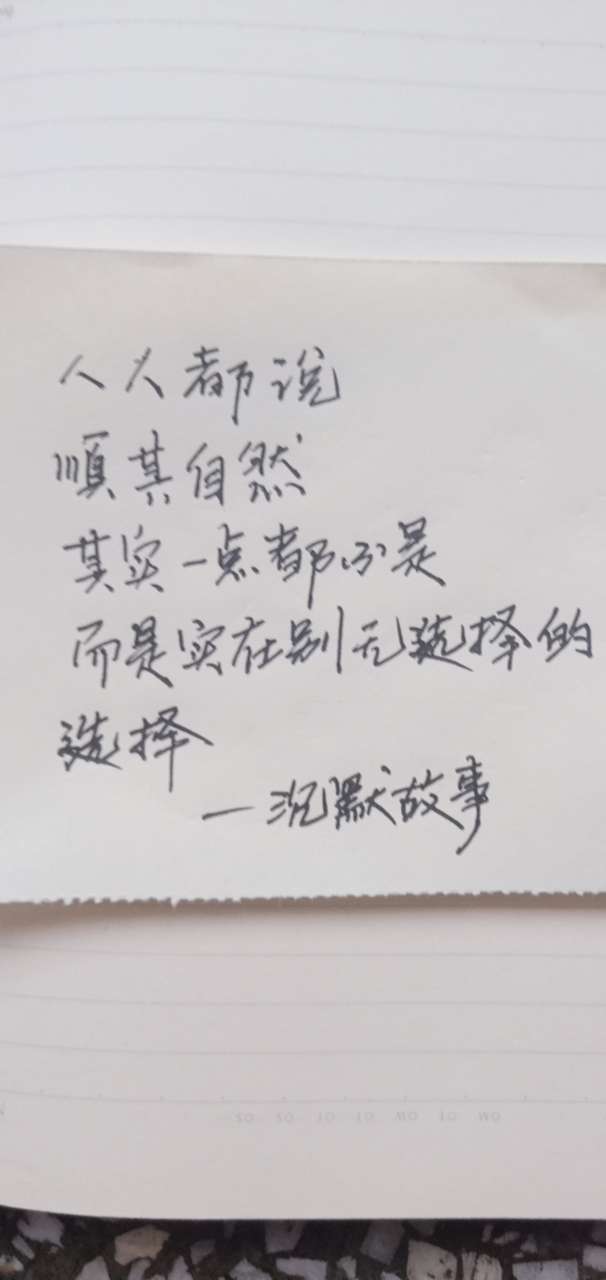 人人都说
順其自然
其实一点都不是
而是实在别无选择的
选择
一沉默故事